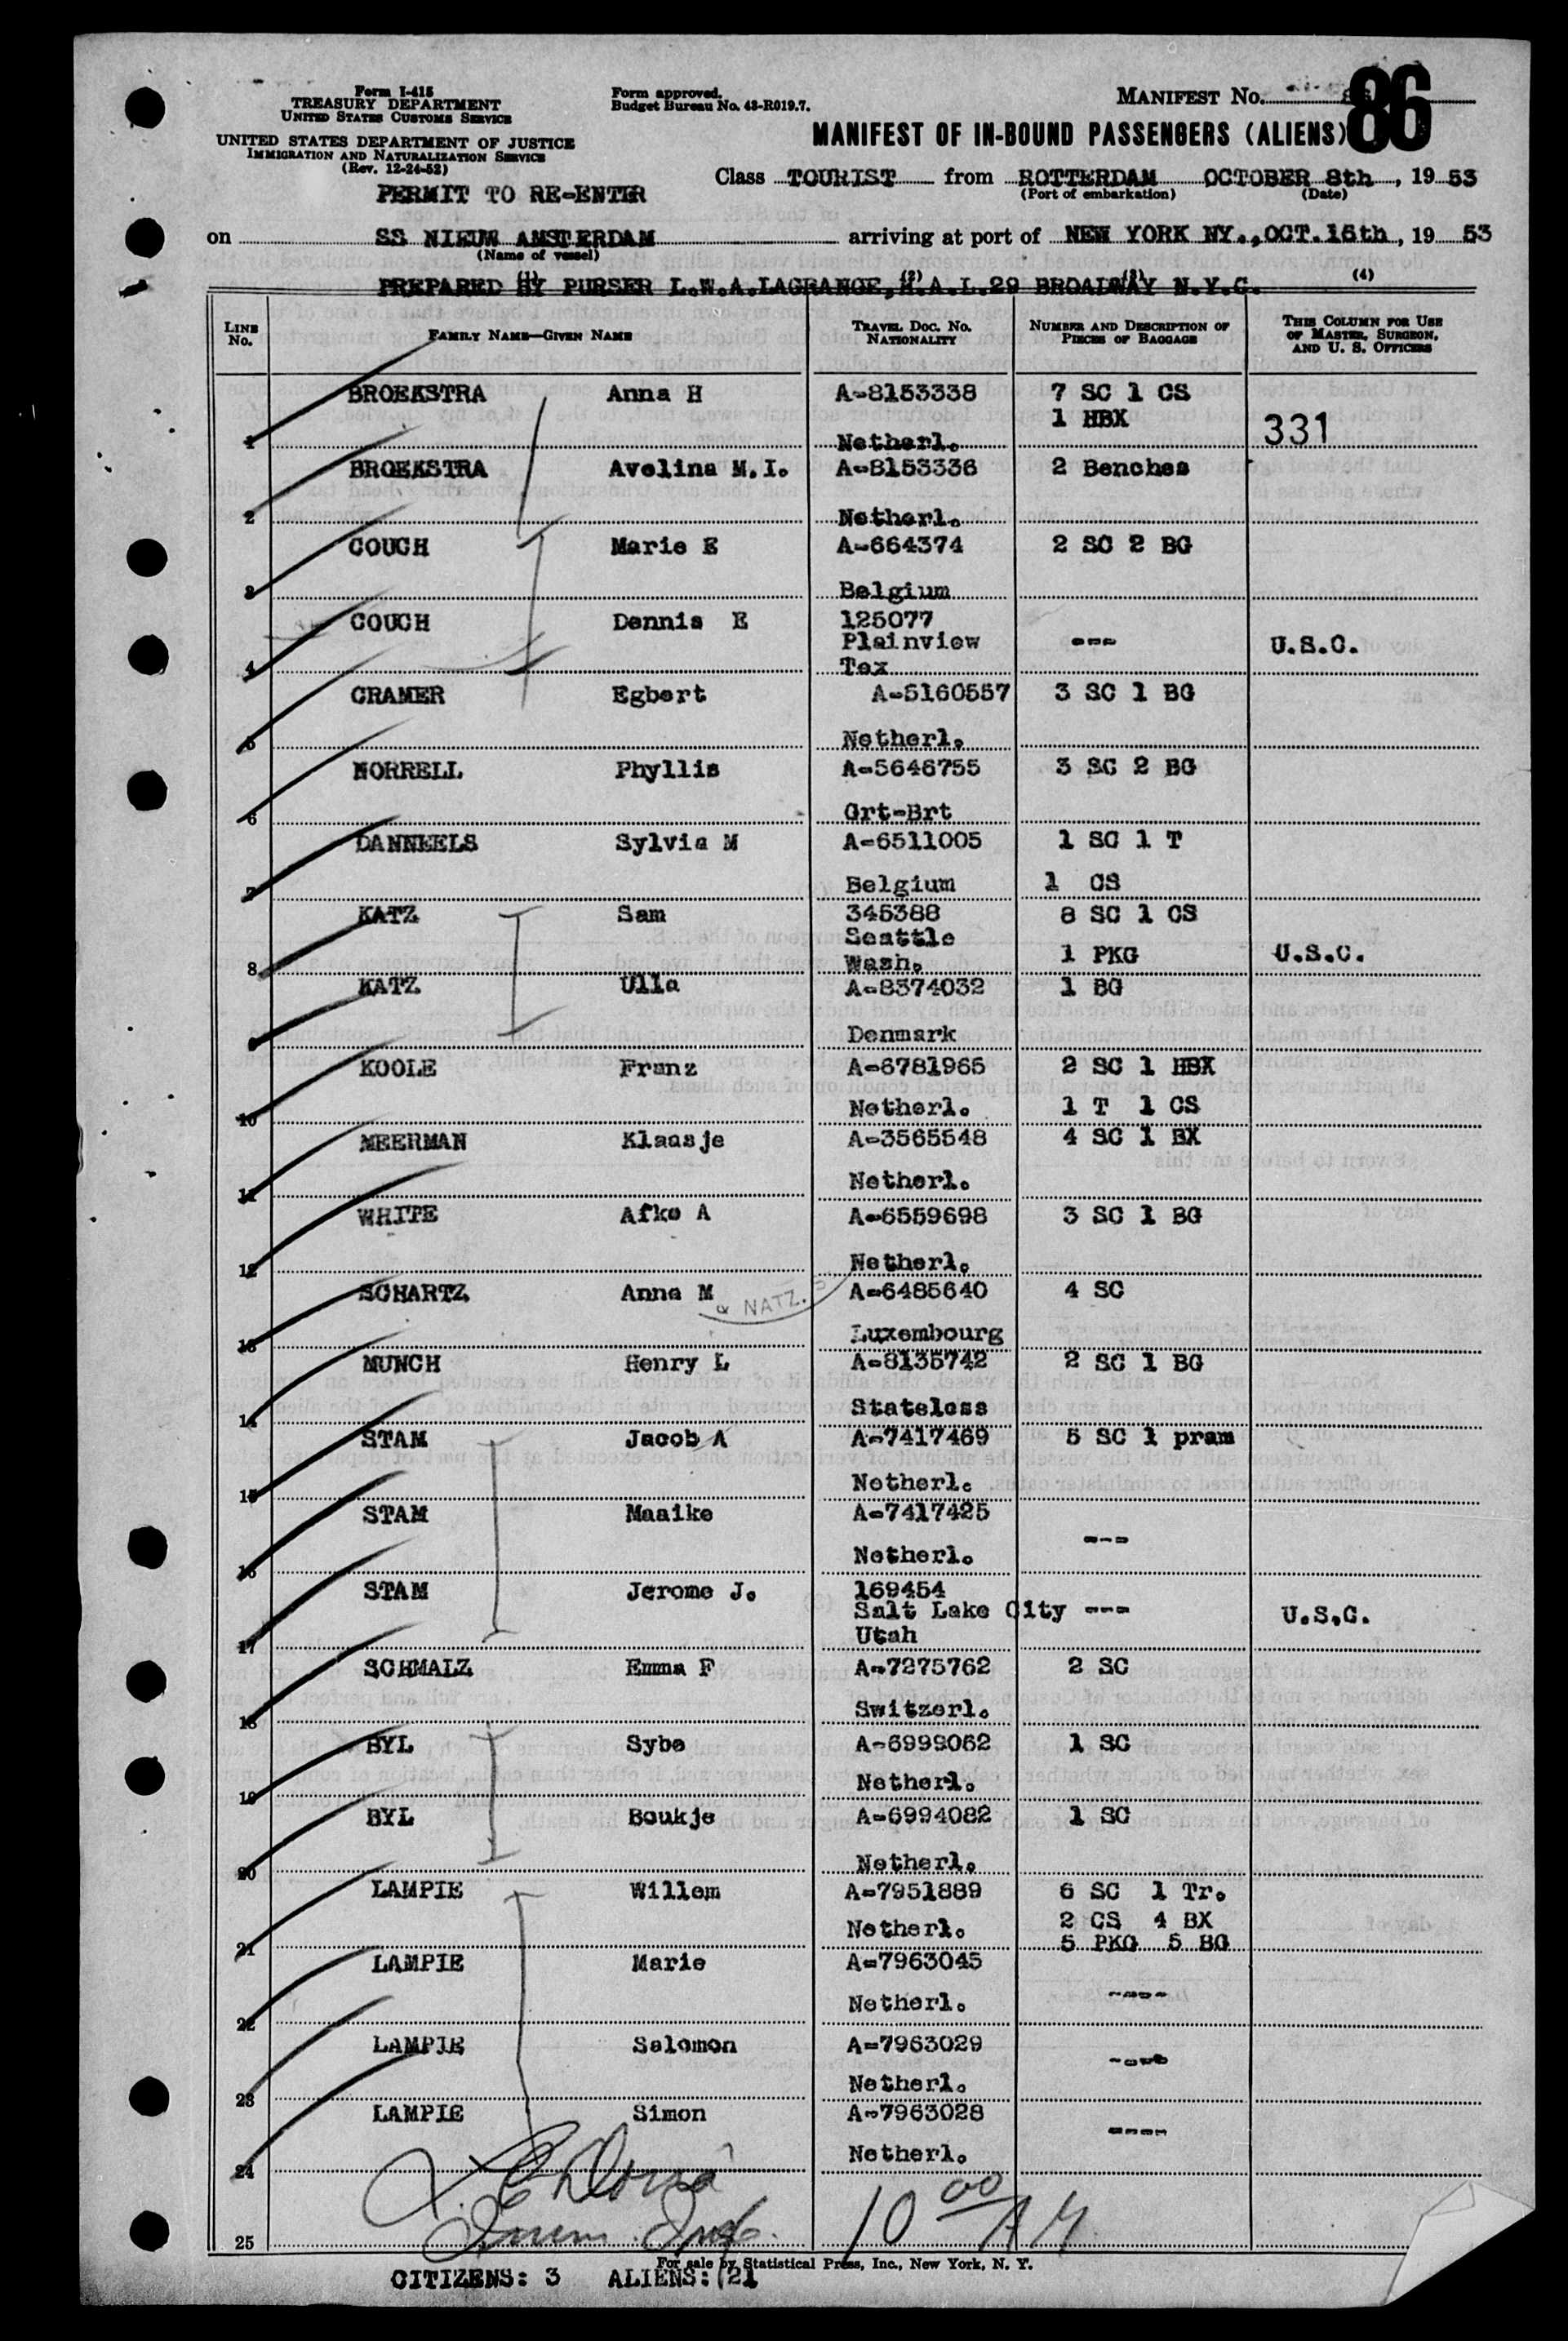 Form I-415
TREASURY DEPARTMENT
UNITED STATES CUSTOMS SERVICE
UNITED STATES DEPARTMENT OF JUSTICE
IMMIGRATION AND NATURALIZATION SERVICE
(Rev. 12-24-52)
Form approved.
Budget Bureau No. 43-R019.7.
MANIFEST No. 86
MANIFEST OF IN-BOUND PASSENGERS (ALIENS)
Class TOURIST from ROTTERDAM OCTOBER 8th, 19 53
(Port of embarkation) (Date)
PERMIT TO RE-ENTER
on SS NIEUW AMSTERDAM arriving at port of NEW YORK NY., OCT. 15th, 19 53
(Name of vessel)
PREPARED BY PURSER L.W.A.LAGRANGE, H.A.L. 29 BROADWAY N.Y.C.
(1) (2) (3) (4)
LINE No. FAMILY NAME—GIVEN NAME TRAVEL DOC. NO. NATIONALITY NUMBER AND DESCRIPTION OF PIECES OF BAGGAGE THIS COLUMN FOR USE OF MASTER, SURGEON, AND U. S. OFFICERS
BROEKSTRA Anna H A-8153338 7 SC 1 CS
1 HBX 331
1 Netherl.
BROEKSTRA Avelina M.I. A-8153336 2 Benches
2 Netherl.
COUCH Marie E A-664374 2 SC 2 BG
3 Belgium
COUCH Dennis E 125077
Plainview --- U.S.C.
4 Tex
CRAMER Egbert A-5160557 3 SC 1 BG
5 Netherl.
NORRELL Phyllis A-5646755 3 SC 2 BG
6 Grt-Brt
DANNEELS Sylvia M A-6511005 1 SC 1 T
7 Belgium 1 CS
KATZ Sam 345388 8 SC 1 CS
Seattle
8 Wash. 1 PKG U.S.C.
KATZ Ulla A-8374032 1 BG
9 Denmark
KOOLE Franz A-6781965 2 SC 1 HBX
10 Netherl. 1 T 1 CS
MEERMAN Klaasje A-3565548 4 SC 1 BX
11 Netherl.
WHITE Afke A A-6559698 3 SC 1 BG
12 Netherl.
SCHARTZ Anna M A-6485640 4 SC
& NATZ. S
13 Luxembourg
MUNCH Henry L A-8135742 2 SC 1 BG
14 Stateless
STAM Jacob A A-7417469 5 SC 1 pram
15 Netherl.
STAM Maaike A-7417425
---
16 Netherl.
STAM Jerome J. 169454
Salt Lake City --- U.S.C.
17 Utah
SCHMALZ Emma F A-7275762 2 SC
18 Switzerl.
BYL Sybe A-6999062 1 SC
19 Netherl.
BYL Boukje A-6994082 1 SC
20 Netherl.
LAMPIE Willem A-7951889 6 SC 1 Tr.
Netherl. 2 CS 4 BX
21 5 PKG 5 BG
LAMPIE Marie A-7963045
22 Netherl. ----
LAMPIE Salomon A-7963029
----
23 Netherl.
LAMPIE Simon A-7963028
----
24 Netherl.
10 00 AM
Imm. Insp.
25
For sale by Statistical Press, Inc., New York, N. Y.
CITIZENS: 3 ALIENS: 21